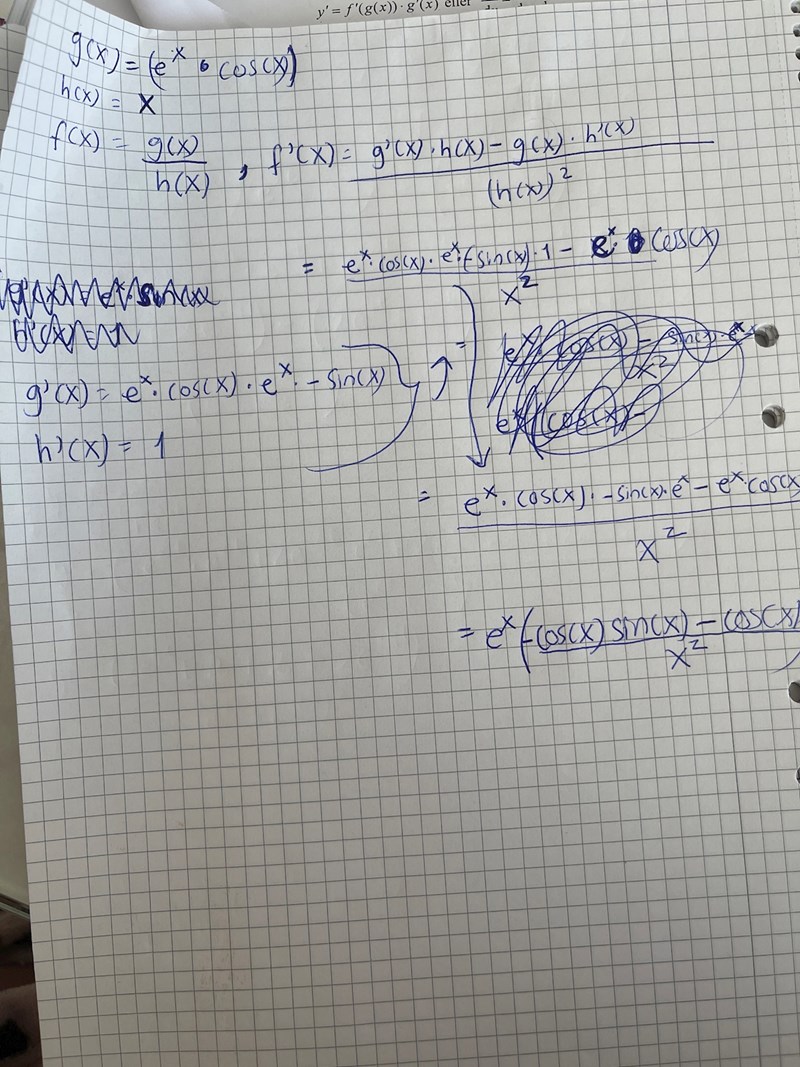 y' = f'(g(x)) · g'(x) eller
g(x) = (e^x · cos(x))
h(x) = x
f(x) = g(x)/h(x) , f'(x) = (g'(x) · h(x) - g(x) · h'(x))/(h(x))^2
= (e^x · cos(x) · e^x · (-sin(x) · 1 - e^x · cos(x))/x^2
g'(x) = e^x · cos(x) · e^x · - sin(x)
h'(x) = 1
= (e^x · cos(x) · -sin(x) · e^x - e^x · cos(x)/x^2
= e^x (-cos(x) sin(x) - cos(x))/x^2